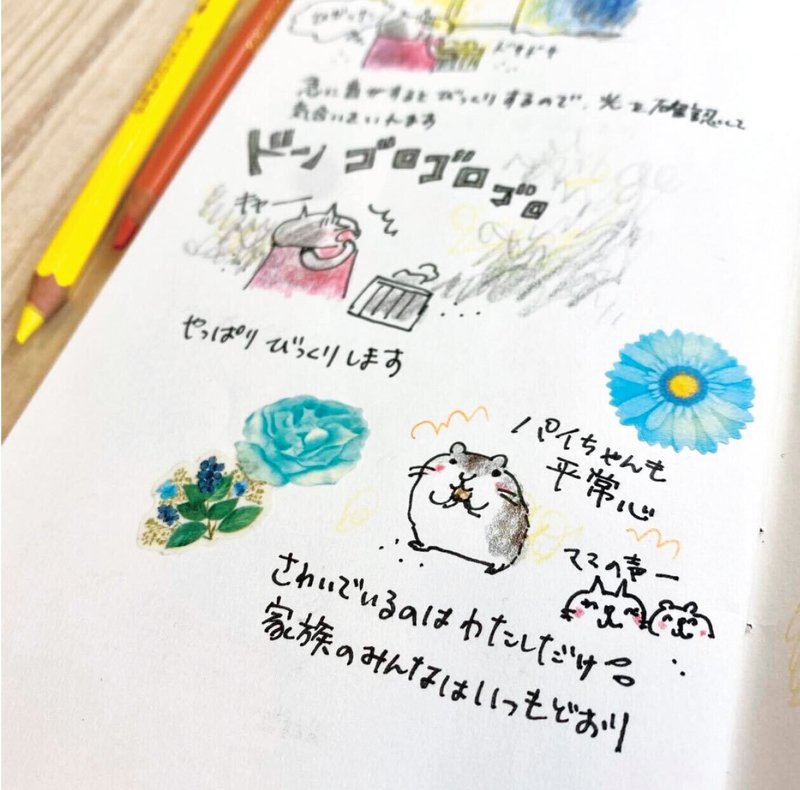 ドキドキ
急に音がするとびっくりするので、光を確認して
気合いをいれます
ドン ゴロゴロゴロ
ギャー
やっぱり びっくりします
パイちゃんも
平常心
ママの声ー
さわいでいるのは わたしだけ
家族のみんなはいつもどおり